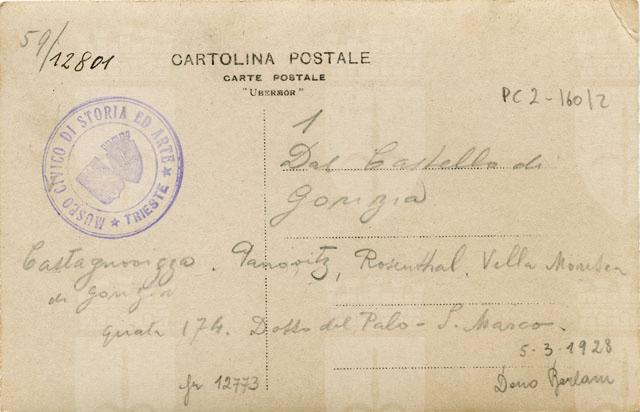 59/12801
CARTOLINA POSTALE
CARTE POSTALE
"UBERMOR"
PC2-160/2
MUSEO CIVICO DI STORIA ED ARTE
★ TRIESTE ★
1
Dal Castello di
Gorizia
Castagnovizza. Panovitz, Rosenthal. Villa
di Gorizia
quota 174. Dosso del Palo - S. Marco.
5-3-1928
fr 12773